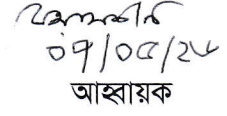 ০৭/০৫/২৬
আহ্বায়ক